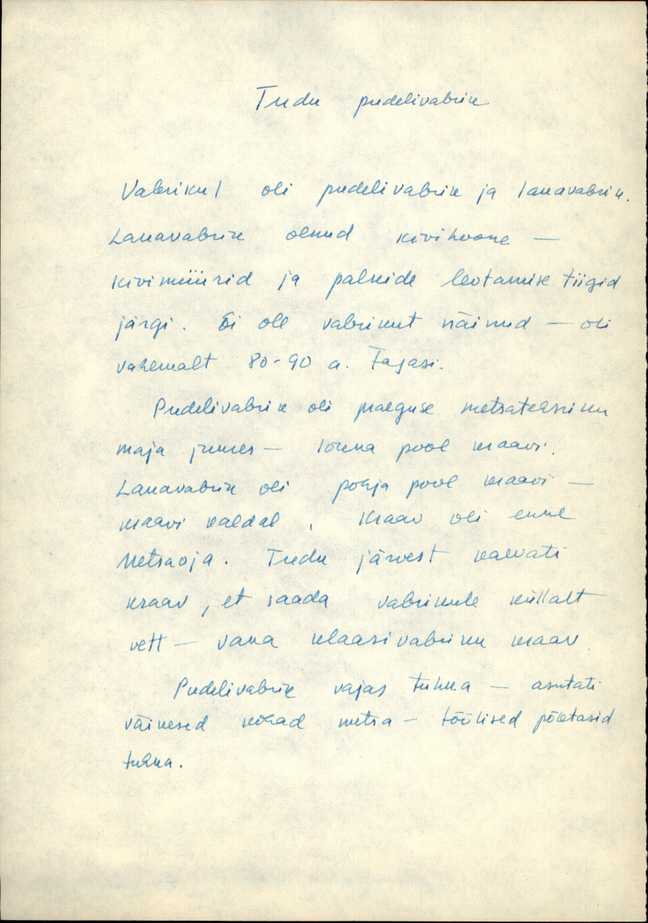 Tudu pudelivabrik
Vabrikul oli pudelivabrik ja lauavabrik.
Lauavabrik olnud kivihoone —
kivimüürid ja palkide leotamise tiigid
järgi. Ei ole vabrikut näinud — oli
vahemalt 80-90 a. tagasi.
Pudelivabrik oli praeguse metsatehniku
maja juures — lõuna pool kraavi.
Lauavabrik oli põhja pool kraavi —
kraavi kaldal. Kraav oli enne
Metsaoja. Tudu järvest kaevati
kraav, et saada vabrikule küllalt
vett — vana klaasivabriku kraav
Pudelivabrik vajas tuhka — asutati
väikesed kojad metsa — töölised põetasid
tuhka.